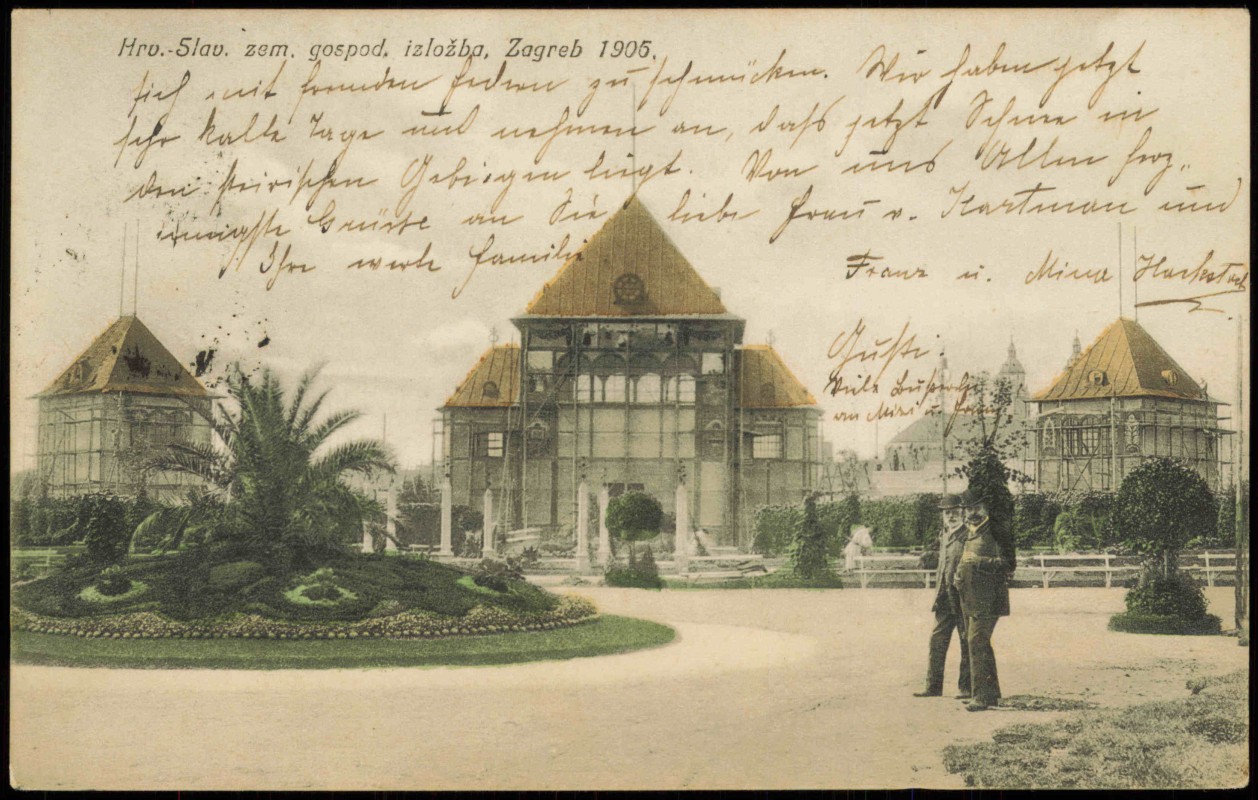 Hrv.-Slav. zem. gospod. izložba, Zagreb 1906.
sich mit fremden Federn zu schmücken. Wir haben jetzt
sehr kalte Tage und nehmen an, daß jetzt Schnee in
den steirischen Gebirgen liegt. Von uns Allen herz-
innigste Grüße an Sie liebe Frau v. Hartman und
Ihre werte Familie
Franz u. Mina
Guste
Viele
an Mizi u.